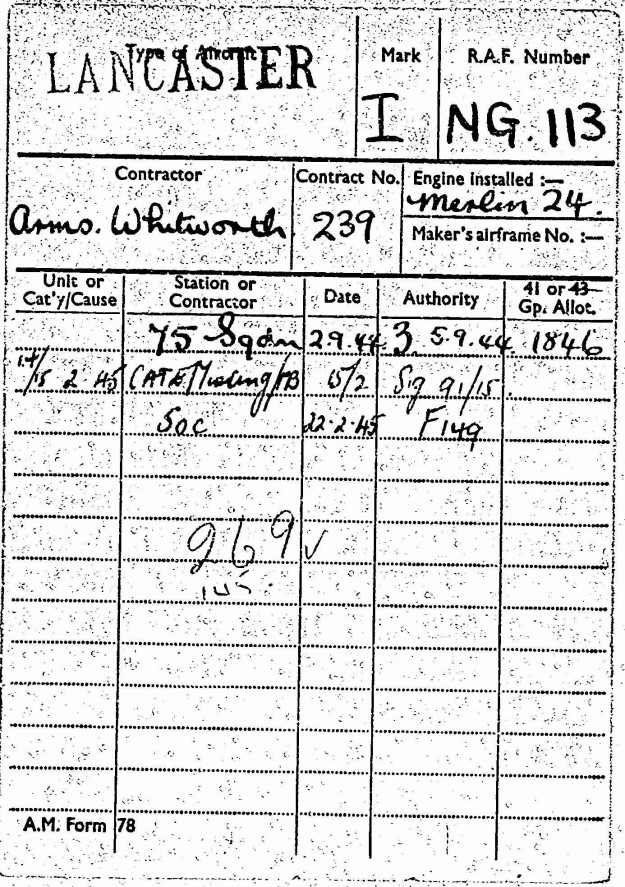 Type of Aircraft
LANCASTER
Mark
I
R.A.F. Number
NG. 113
Contractor
Arms. Whitworth
Contract No.
239
Engine installed :—
Merlin 24.
Maker's airframe No. :—
Unit or Cat'y/Cause Station or Contractor Date Authority 41 or 43 Gp. Allot.
75 Sqdn 2.9.44. 3. 5.9.44. 1846
14/15 2 45 CAT E/Missing/FB 15/2 Sg 91/15.
Soc 22.2.45 F149
269 ✓
145.
A.M. Form 78